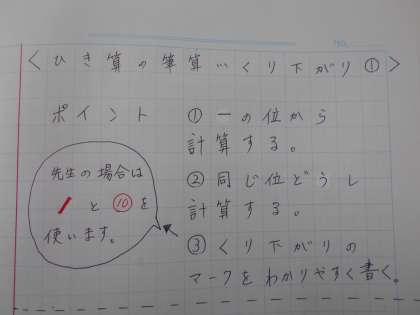 〈ひき算の筆算…くり下がり①〉
ポイント
①一の位から
計算する。
②同じ位どうし
計算する。
③くり下がりの
マークをわかりやすく書く。
先生の場合は
/と⑩を
使います。